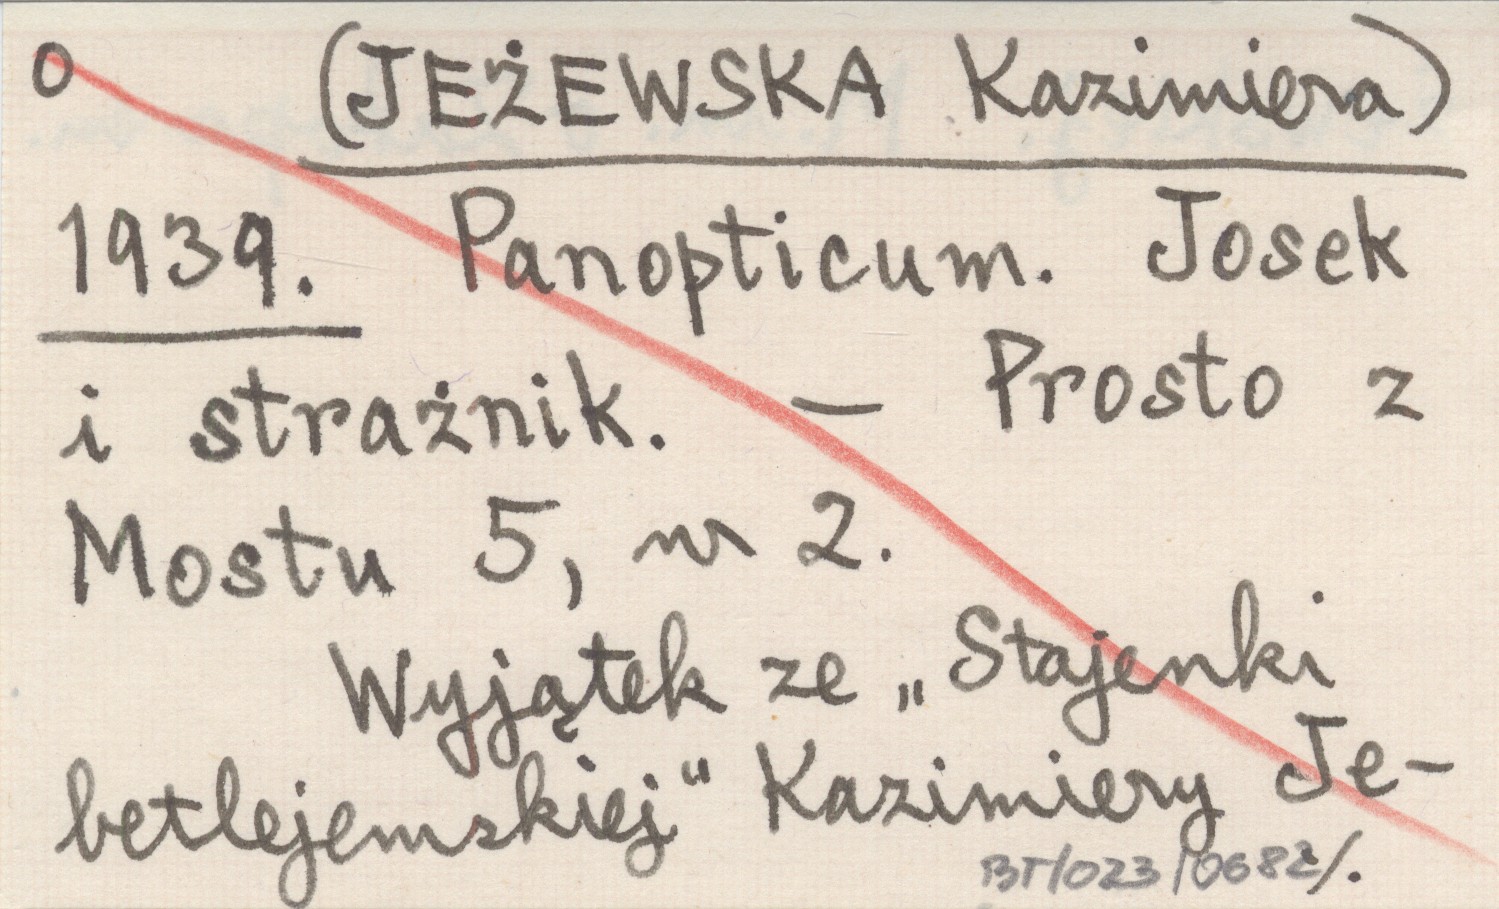 O (JEŻEWSKA Kazimiera)
1939. Panopticum. Josek
i strażnik. — Prosto z
Mostu 5, nr 2.
Wyjątek ze „Stajenki
betlejemskiej“ Kazimiery Je-
BT/023/0682/.